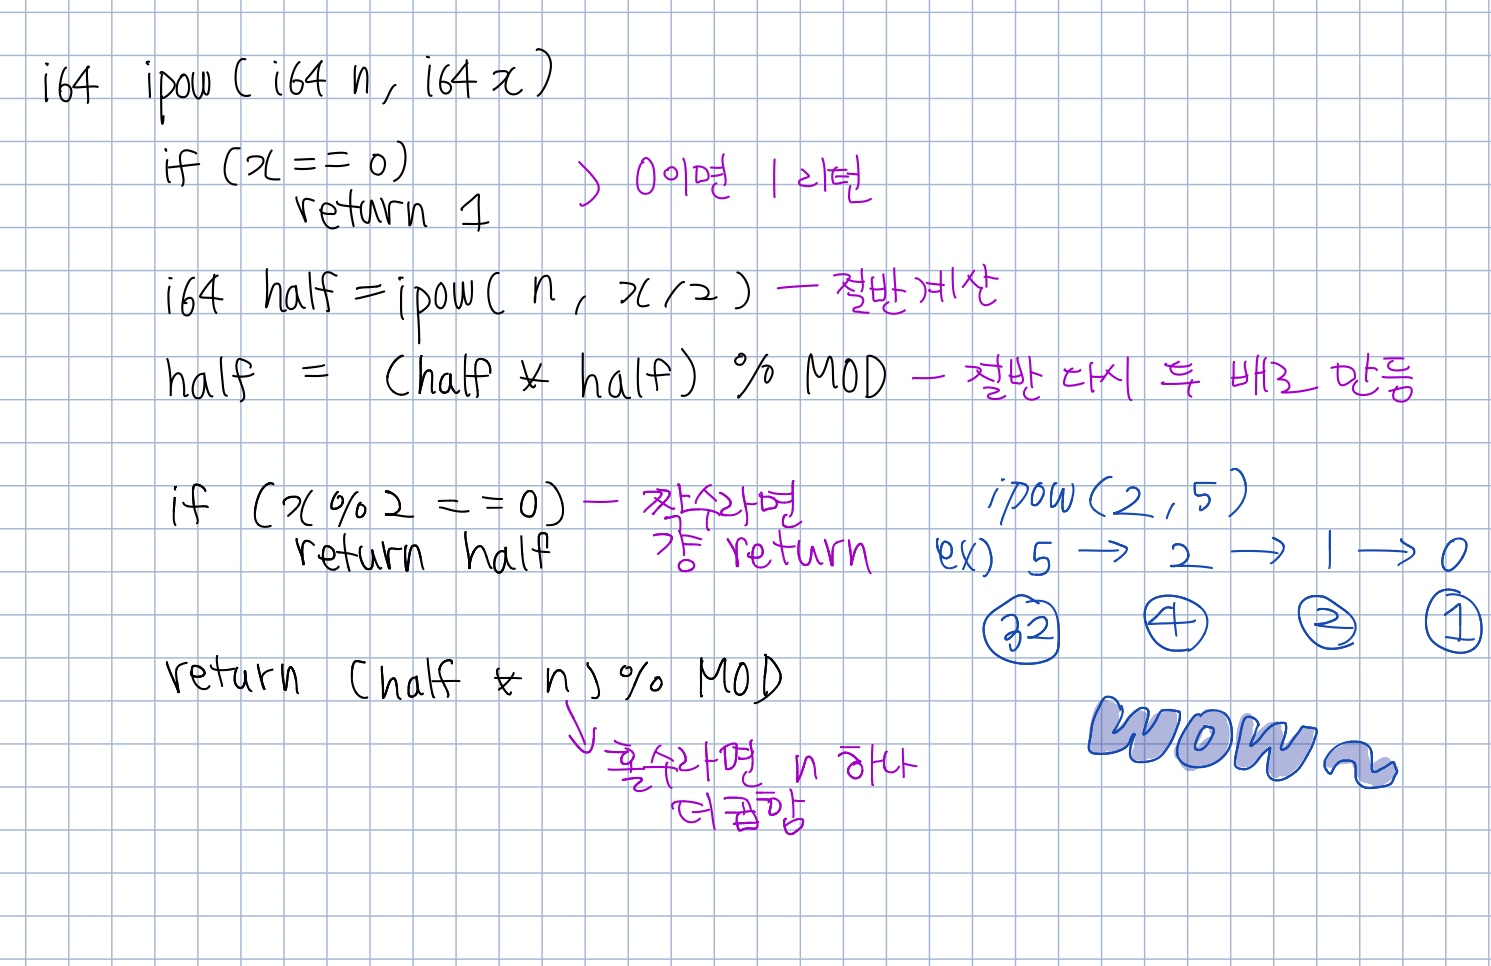 i64 ipow(i64 n, i64 x)
if (x == 0) ) 0이면 1 리턴
return 1
i64 half = ipow(n, x/2) — 절반계산
half = (half * half) % MOD — 절반 다시 두 배로 만듬
if (x%2 == 0) — 짝수라면
return half 걍 return
ipow(2,5)
ex) 5 → 2 → 1 → 0
32 4 2 1
return (half * n) % MOD
↘ 홀수라면 n 하나
더곱함
wow~